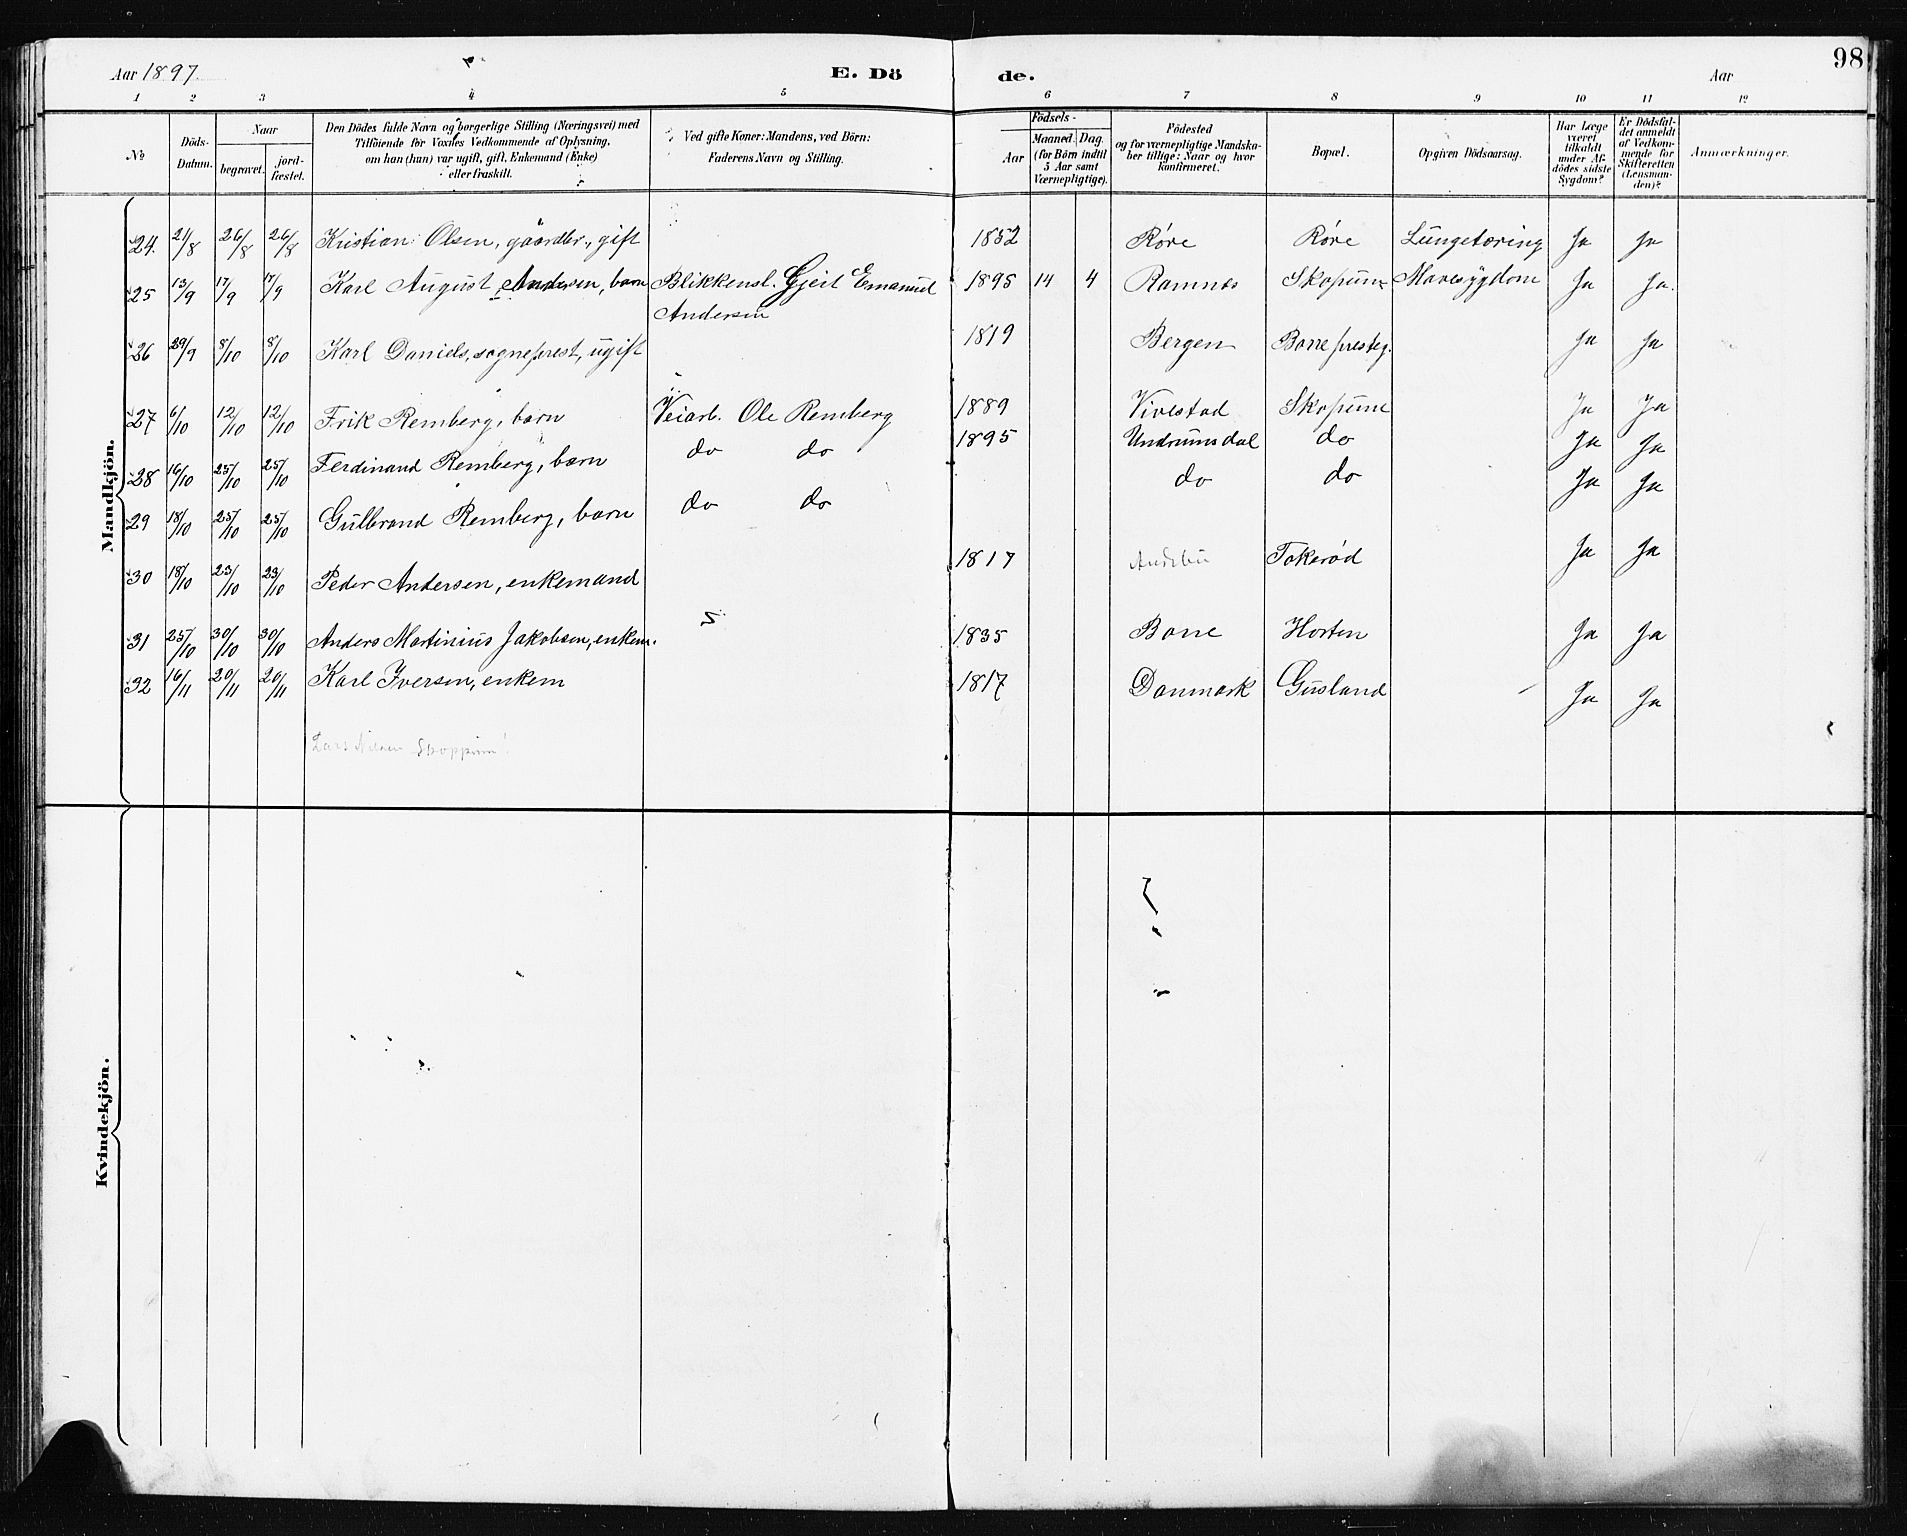 98
Aar 1897. E. Dö de. Aar
1 2 3 4 5 6 7 8 9 10 11 12
No
Döds-Datum.
Naar
begravet.
jordfæstet.
Den Dödes fulde Navn og borgerlige Stilling (Næringsvei) med
Tilföiende for Voxnes Vedkommende af Oplysning,
om han (hun) var ugift, gift, Enkemand (Enke)
eller fraskilt.
Ved gifte Koner: Mandens, ved Börn:
Faderens Navn og Stilling.
Födsels-
Aar
Maaned. Dag.
(for Börn indtil
5 Aar samt
Værnepligtige).
Födested
og for værnepligtige Mandska-
ber tillige: Naar og hvor
konfirmeret.
Bopæl.
Opgiven Dödsaarsag.
Har Læge
været
tilkaldt
under Af-
dödes sidste
Sygdom?
Er Dödsfal-
det anmeldt
af Vedkom-
mende for
Skifteretten
(Lensman-
den)?
Anmærkninger.
Mandkjön.
24. 21/8 26/8 26/8 Kristian Olsen, gaardbr., gift 1852 Røre Røre Lungetæring Ja Ja
25 13/9 17/9 17/9 Karl August Andersen, barn Blikkensl. Gjert Emanuel 1895 14 4 Ramnes Skopum Mavesygdom Ja Ja.
Andersen
26 29/9 8/10 8/10 Karl Daniels, sogneprest, ugift 1819 Bergen Borre presteg. Ja Ja
27 6/10 12/10 12/10 Erik Remberg, barn Veiarb. Ole Remberg 1889 Vivestad Skopum Ja Ja
28 16/10 25/10 25/10 Ferdinand Remberg, barn do do 1895 Undrumsdal do Ja Ja
29 18/10 25/10 25/10 Gulbrand Remberg, barn do do do do Ja Ja
30 18/10 23/10 23/10 Peder Andersen, enkemand 1817 Andebu Tokerød Ja Ja
31 25/10 30/10 30/10 Anders Martinius Jakobsen, enkem. 1835 Borre Horten Ja Ja
32 16/11 20/11 20/11 Karl Iversen, enkem 1817 Danmark Gusland Ja Ja
Lars Nilsen Skoppum!
Kvindekjön.